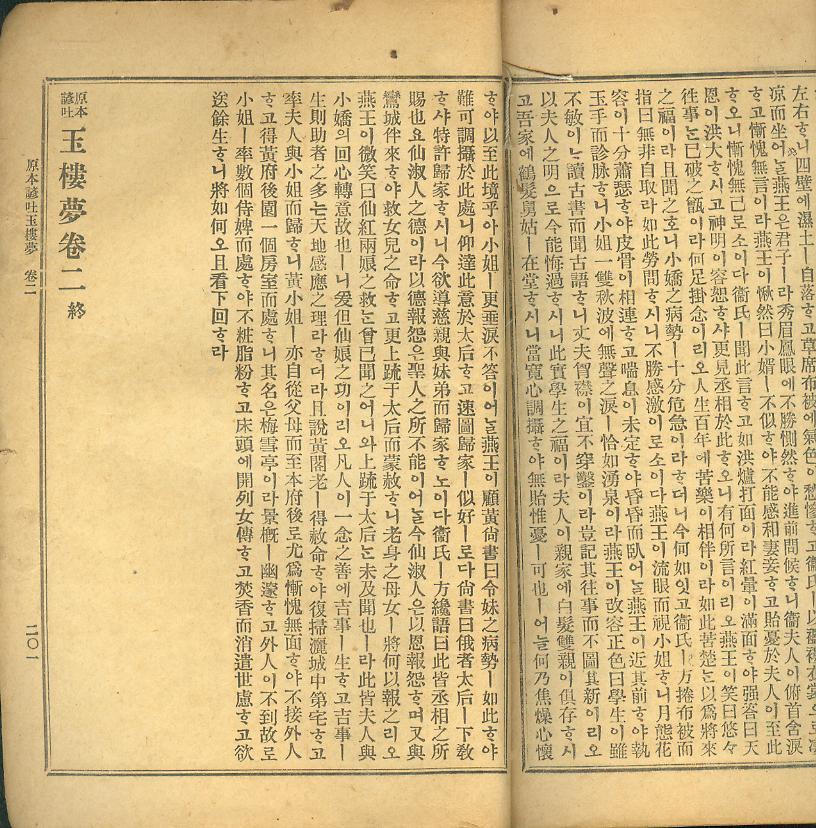 左右ᄒᆞ니四壁에濕土ㅣ自落ᄒᆞ고草席布被에氣色이愁慘ᄒᆞ고衞氏ㅣ以
凉而坐어ᄂᆞᆯ燕王은君子ㅣ라秀眉鳳眼에不勝惻然ᄒᆞ야進前問候ᄒᆞ니衞夫人이俯首含淚
ᄒᆞ고慚愧無言이라燕王이愀然曰小婿ㅣ不似ᄒᆞ야不能感和妻妾ᄒᆞ고貽憂於夫人이至此
ᄒᆞ오니慚愧無已로소이다衞氏ㅣ聞此言ᄒᆞ고如洪爐打面이라紅暈이滿面ᄒᆞ야强答曰天
恩이洪大ᄒᆞ시고神明이容恕ᄒᆞ샤更見丞相於此ᄒᆞ오니有何所言이리오燕王이笑曰悠々
徃事ᄂᆞᆫ已破之甑이라何足掛念이리오人生百年에苦樂이相伴이라如此苦楚ᄂᆞᆫ以爲將來
之福이라且聞之호니小嬌之病勢ㅣ十分危急이라ᄒᆞ더니今何如잇고衞氏ㅣ方捲布被而
指曰無非自取라如此勞問ᄒᆞ시니不勝感激이로소이다燕王이流眼而視小姐ᄒᆞ니月態花
容이十分蕭瑟ᄒᆞ야皮骨이相連ᄒᆞ고喘息이未定ᄒᆞ야昏昏而臥어ᄂᆞᆯ燕王이近其前ᄒᆞ야執
玉手而診脉ᄒᆞ니小姐一雙秋波에無聲之淚ㅣ恰如湧泉이라燕王이改容正色曰學生이雖
不敏이ᄂᆞ讀古書而聞古語ᄒᆞ니丈夫胷襟이宜不穿鑿이라豈記其往事而不圖其新이리오
以夫人之明으로今能悔過ᄒᆞ시니此實學生之福이라夫人이親家에白髮雙親이俱存ᄒᆞ시
고吾家에鶴髮舅姑ㅣ在堂ᄒᆞ시니當寬心調攝ᄒᆞ야無貽惟憂ㅣ可也ㅣ어ᄂᆞᆯ何乃焦燥心懷
ᄒᆞ야以至此境乎아小姐ㅣ更垂淚不答이어ᄂᆞᆯ燕王이顧黃尙書曰令妹之病勢ㅣ如此ᄒᆞ야
難可調攝於此處니仰達此意於太后ᄒᆞ고速圖歸家ㅣ似好ㅣ로다尙書曰俄者太后ㅣ下敎
ᄒᆞ샤特許歸家ᄒᆞ시니今欲導慈親與妹弟而歸家ᄒᆞ노이다衞氏ㅣ方纔語曰此皆丞相之所
賜也요仙淑人之德이라以德報怨은聖人之所不能이어ᄂᆞᆯ今仙淑人은以恩報怨ᄒᆞ며又與
鸞城伴來ᄒᆞ야救女兒之命ᄒᆞ고更上䟽于太后而蒙赦ᄒᆞ니老身之母女ㅣ將何以報之리오
燕王이微笑曰仙紅兩娘之救ᄂᆞᆫ曾已聞之어니와上䟽于太后ᄂᆞᆫ未及聞也ㅣ라此皆夫人與
小嬌의回心轉意故也ㅣ니爰但仙娘之功이리오凡人이一念之善에吉事ㅣ生ᄒᆞ고吉事ㅣ
生則助者之多ᄂᆞᆫ天地感應之理라ᄒᆞ더라且說黃閣老ㅣ得赦命ᄒᆞ야復掃灑城中第宅ᄒᆞ고
率夫人與小姐而歸ᄒᆞ니黃小姐ㅣ亦自從父母而至本府後로尤爲慚愧無面ᄒᆞ야不接外人
ᄒᆞ고得黃府後園一個房室而處ᄒᆞ니其名은梅雪亭이라景槪ㅣ幽邃ᄒᆞ고外人이不到故로
小姐ㅣ率數個侍婢而處ᄒᆞ야不粧脂粉ᄒᆞ고床頭에開列女傳ᄒᆞ고焚香而消遣世慮ᄒᆞ고欲
送餘生ᄒᆞ니將如何오且看下回ᄒᆞ라
原本諺吐 玉樓夢卷二 終
原本諺吐玉樓夢 卷二 二〇一